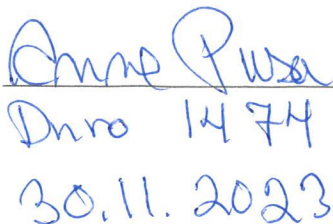 Anne Pusa
Dnro 1474
30.11.2023